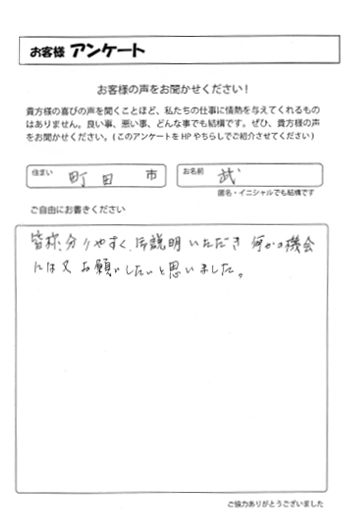 お客様 アンケート
お客様の声をお聞かせください!
貴方様の喜びの声を聞くことほど、私たちの仕事に情熱を与えてくれるもの
はありません。良い事、悪い事、どんな事でも結構です。ぜひ、貴方様の声
をお聞かせください。(このアンケートをHPやちらしでご紹介させてください)
住まい 町田 市 お名前 武
匿名・イニシャルでも結構です
ご自由にお書きください
皆様、分りやすく、御説明いただき 何かの機会
には又お願いしたいと思いました。
ご協力ありがとうございました